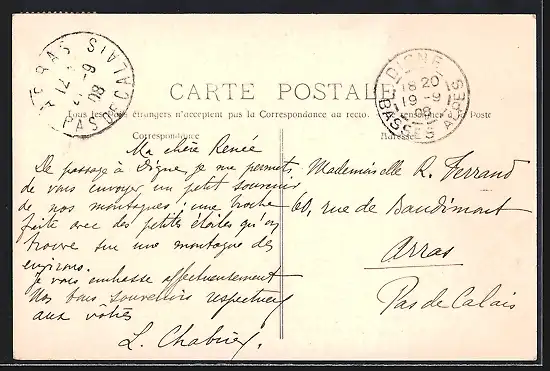 ARRAS
PAS DE CALAIS
-9
08
DIGNE
18 20
19 -9
08
BASSES ALPES
CARTE POSTALE
Tous les Pays étrangers n'acceptent pas la Correspondance au recto. se renseigner à la Poste
Correspondance
Adresse
Ma chère Renée
De passage à Digne, je me permets
de vous envoyer un petit souvenir
de nos montagnes; une broche
faite avec des petites étoiles qu'on
trouve sur une montagne des
environs.
Je vous embrasse affectueusement
Nos bons souvenirs respectueux
aux vôtres
L. Chabrier.
Mademoiselle R. Ferrand
60, rue de Baudimont
Arras
Pas de Calais